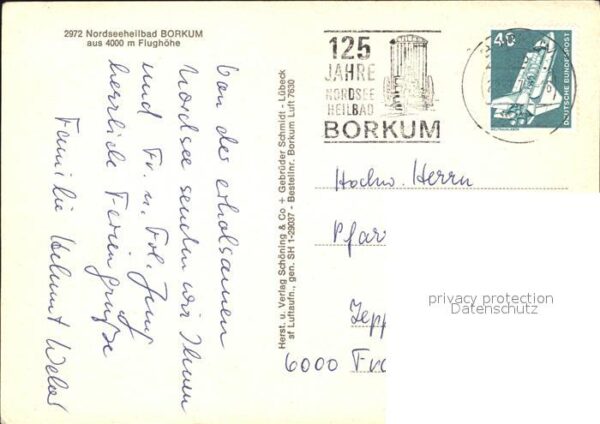 2972 Nordseeheilbad BORKUM
aus 4000 m Flughöhe
Von der erholsamen
Nordsee senden wir Ihnen
und Fr. u. Frl. Jung
herrliche Feriengrüße
Familie Helmut Weber
Herst. u. Verlag Schöning & Co + Gebrüder Schmidt - Lübeck
sf Luftaufn., gen. SH 1-29037 - Bestellnr. Borkum Luft 7630
125
JAHRE
NORDSEE
HEILBAD
BORKUM
40
DEUTSCHE BUNDESPOST
Hochw. Herrn
Pfar
Zepp
6000 Fra
privacy protection
Datenschutz